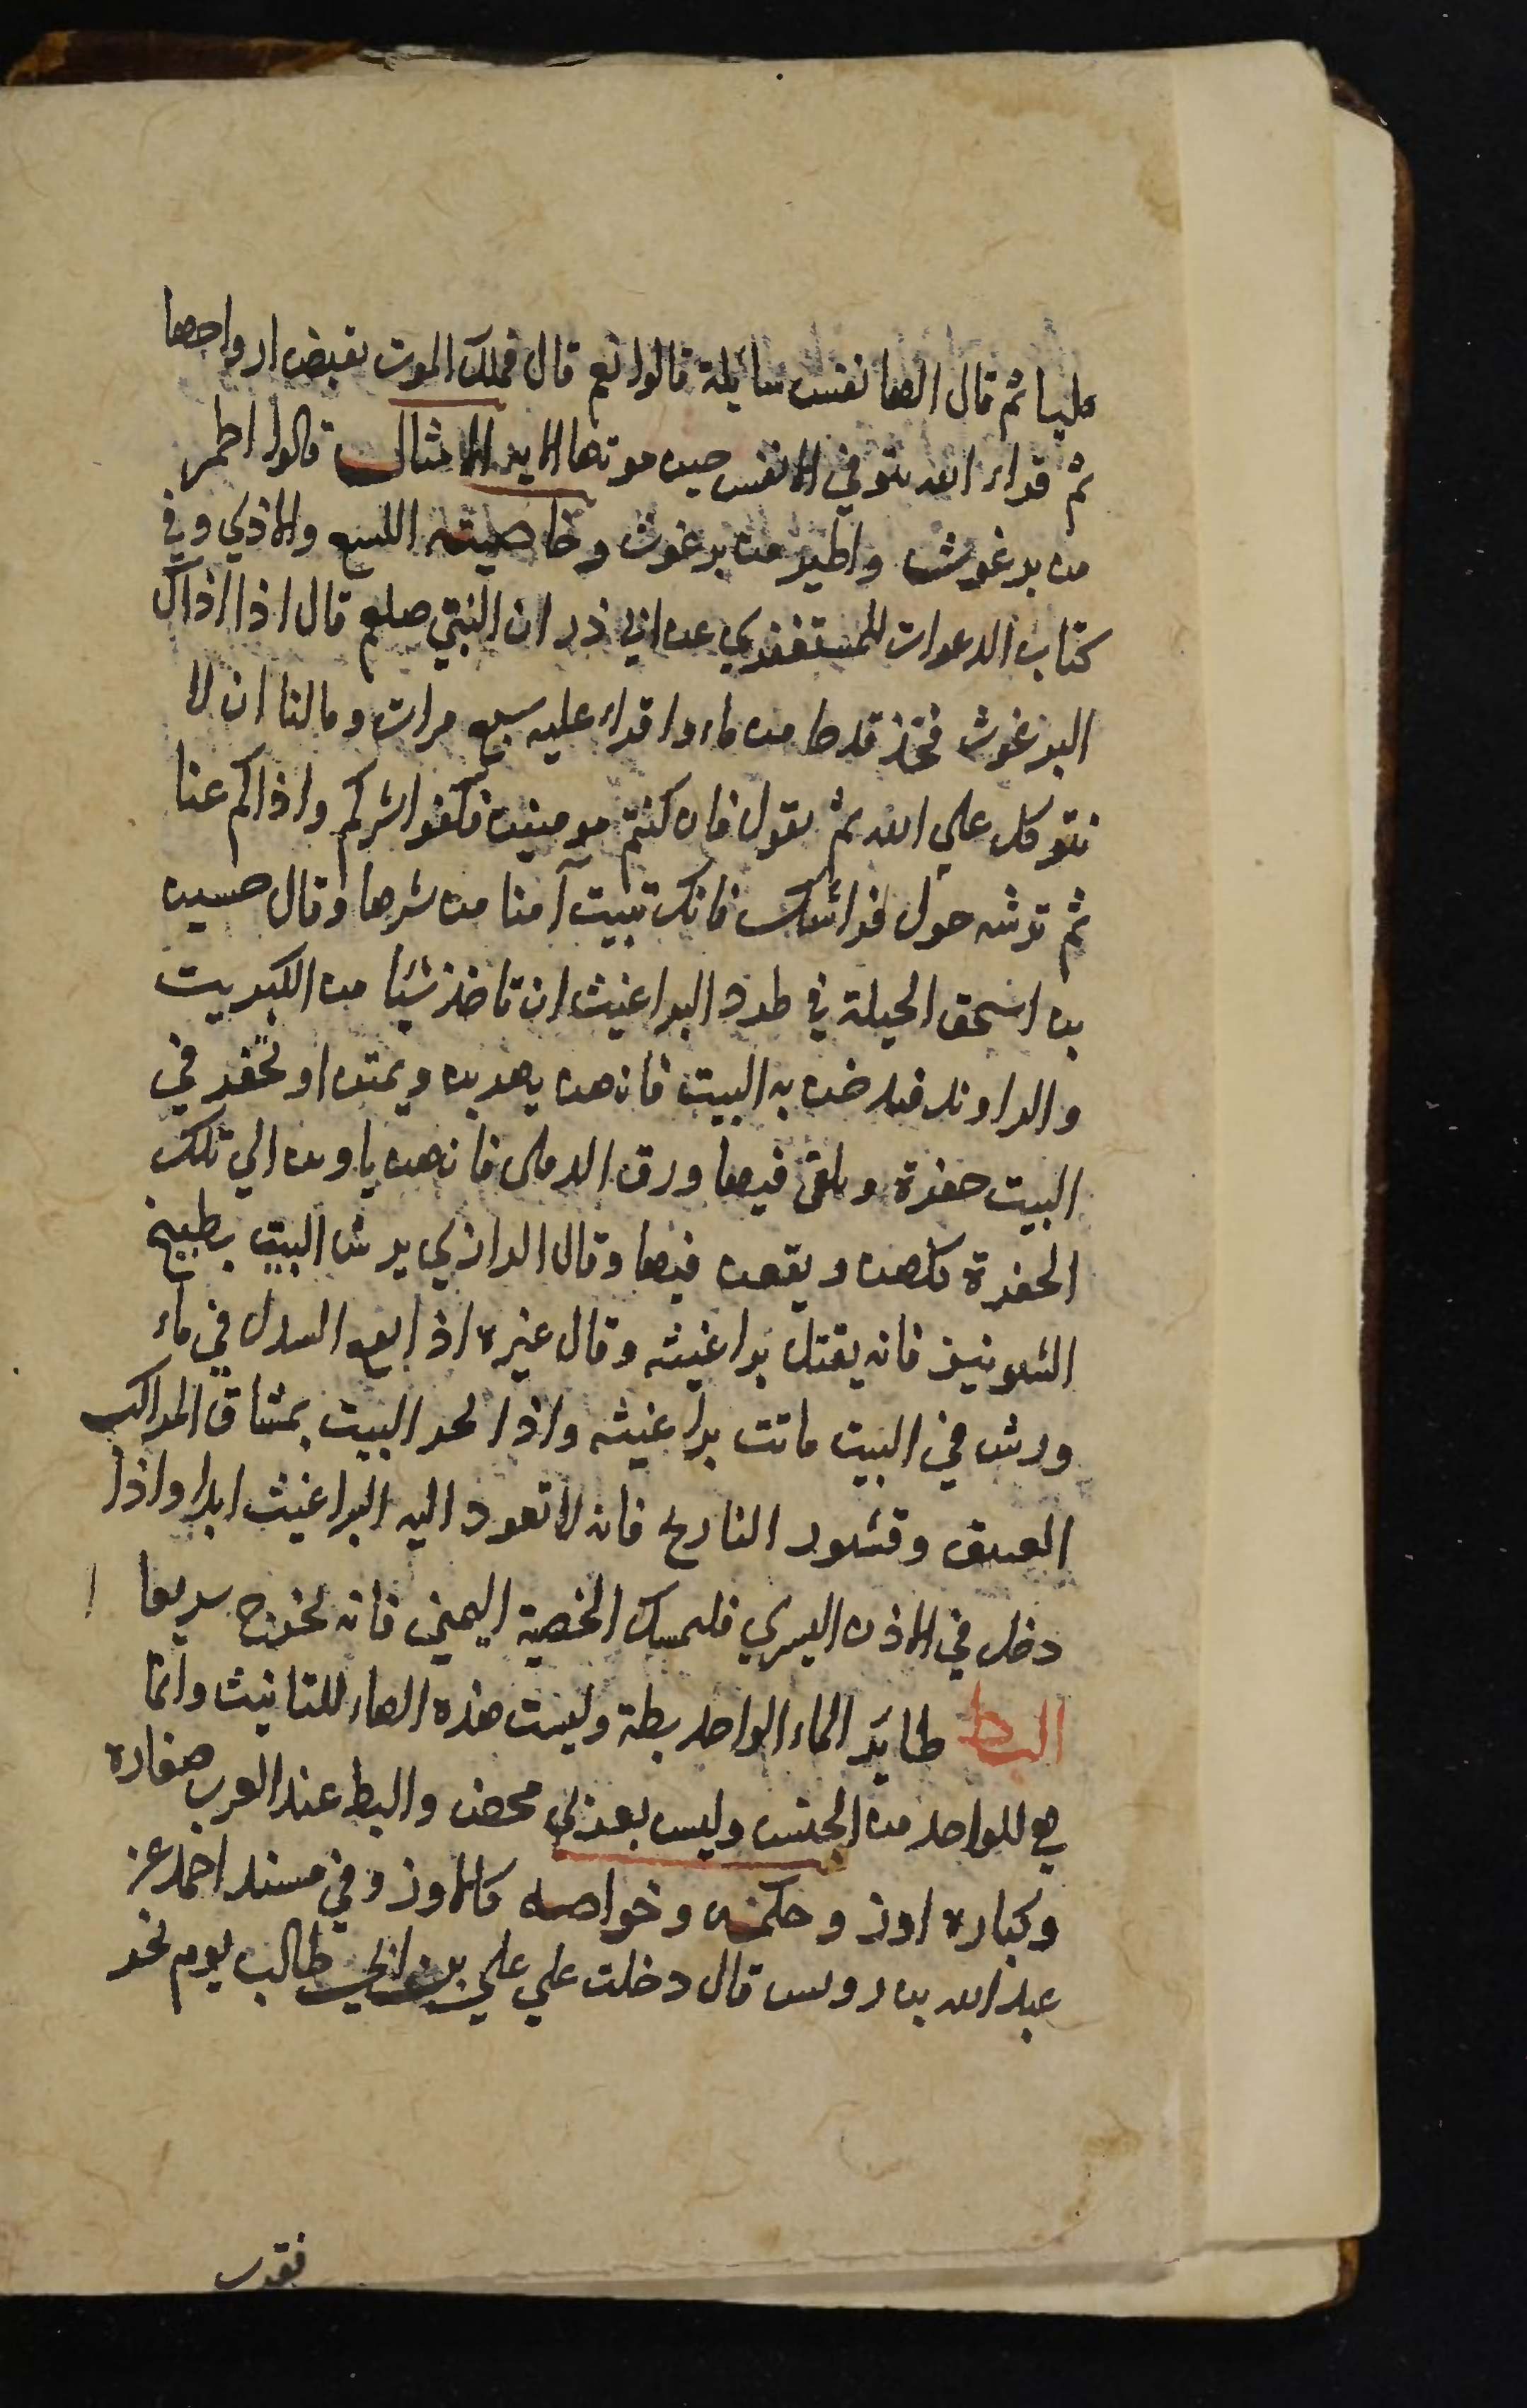 مليا ثم قال الها نفس سائلة قالوا نعم قال فملك الموت يقبض ارواحها
ثم قراء الله يتوفي الانفس حين موتها الايه الامثال قالوا اطمر
من برغوث واطير من برغوث وخاصيته اللسع والاذي وفي
كتاب الدعوات للمستغفري عن ابي ذر ان النبي صلعم قال اذا اذاك
البرغوث فخذ قدحا من ماء واقراء عليه سبع مرات وما لنا ان لا
نتوكل علي الله ثم يقول فان كنتم مومنين فكفوا شركم واذاكم عنا
ثم ترشه حول فراشك فانك تبيت آمنا من شرها وقال حسين
بن اسحق الحيلة في طرد البراغيث ان تاخذ شيئا من الكبريت
والراوند فيدخن به البيت فانهن يهربن ويمتن او تحفر في
البيت حفرة ويلقى فيها ورق الدفلى فانهن ياوين الي تلك
الحفرة كلهن ويقعن فيها وقال الرازي يرش البيت بطبيخ
الشونيز فانه يقتل براغيثه وقال غيره اذا نقع السداب في ماء
ورش في البيت ماتت براغيثه واذا بخر البيت بمشاق المراكب
العتيق وقشور النارنج فانه لا تعود اليه البراغيث ابدا واذا
دخل في الاذن اليسري فليمسك الخصية اليمني فانه يخرج سريعا
البط طاير الماء الواحد بطة وليست هذه الهاء للتانيث وانما
هي للواحد من الجنس وليس بعربي محض والبط عند العرب صغاره
وكباره اوز وحكمه وخواصه كالاوز وفي مسند احمد عن
عبد الله بن رويس قال دخلت علي علي بن ابي طالب يوم نحر
فقرب